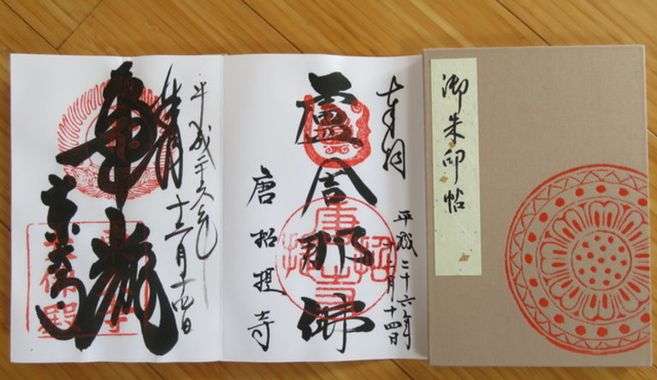 御朱印帖
奉拝
平成二十六年
月十四日
盧舎那佛
唐招提寺
平成二十六年
十二月十四日
奉拝
華厳
東大寺